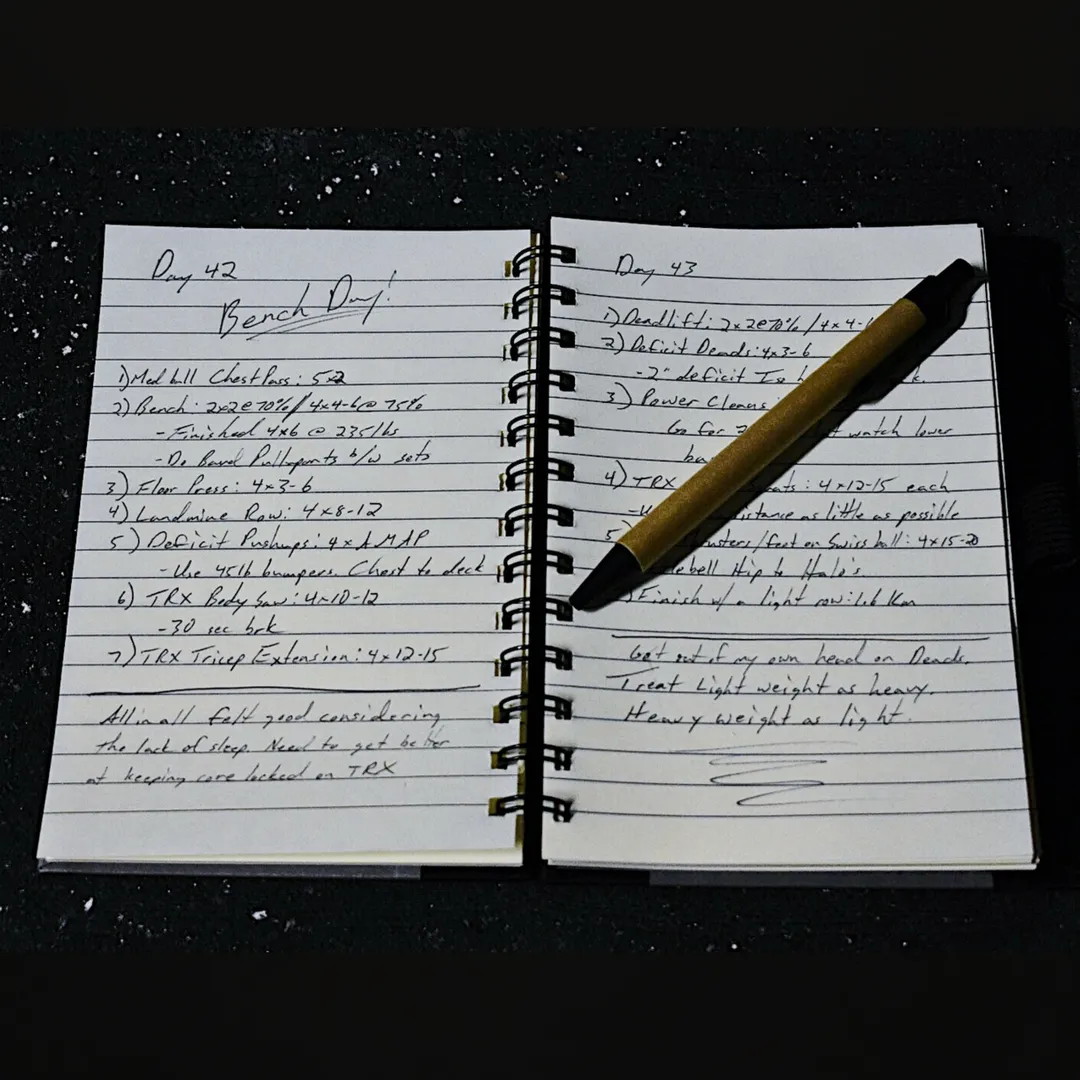 Day 42
Bench Day!
1) Med ball Chest Pass: 5x2
2) Bench: 2x2@70% / 4x4-6@75%
- Finished 4x6 @ 235lbs
- Do Band Pullaparts b/w sets
3) Floor Press: 4x3-6
4) Landmine Row: 4x8-12
5) Deficit Pushups: 4xAMAP
- Use 45lb bumpers. Chest to deck
6) TRX Body Saw: 4x10-12
- 30 sec brk
7) TRX Tricep Extension: 4x12-15
All in all felt good considering
the lack of sleep. Need to get better
at keeping core locked on TRX
Day 43
1) Deadlift: 2x2@70% / 4x4-
2) Deficit Deads: 4x3-6
- 2" deficit
3) Power Cleans:
Go for watch lower
4) TRX : 4x12-15 each
as little as possible
5 /feet on Swiss ball: 4x15-20
Hip to Halo's.
Finish w/ a light row: 1.6 Km
Get out of my own head on Deads.
Treat Light weight as heavy.
Heavy weight as light.